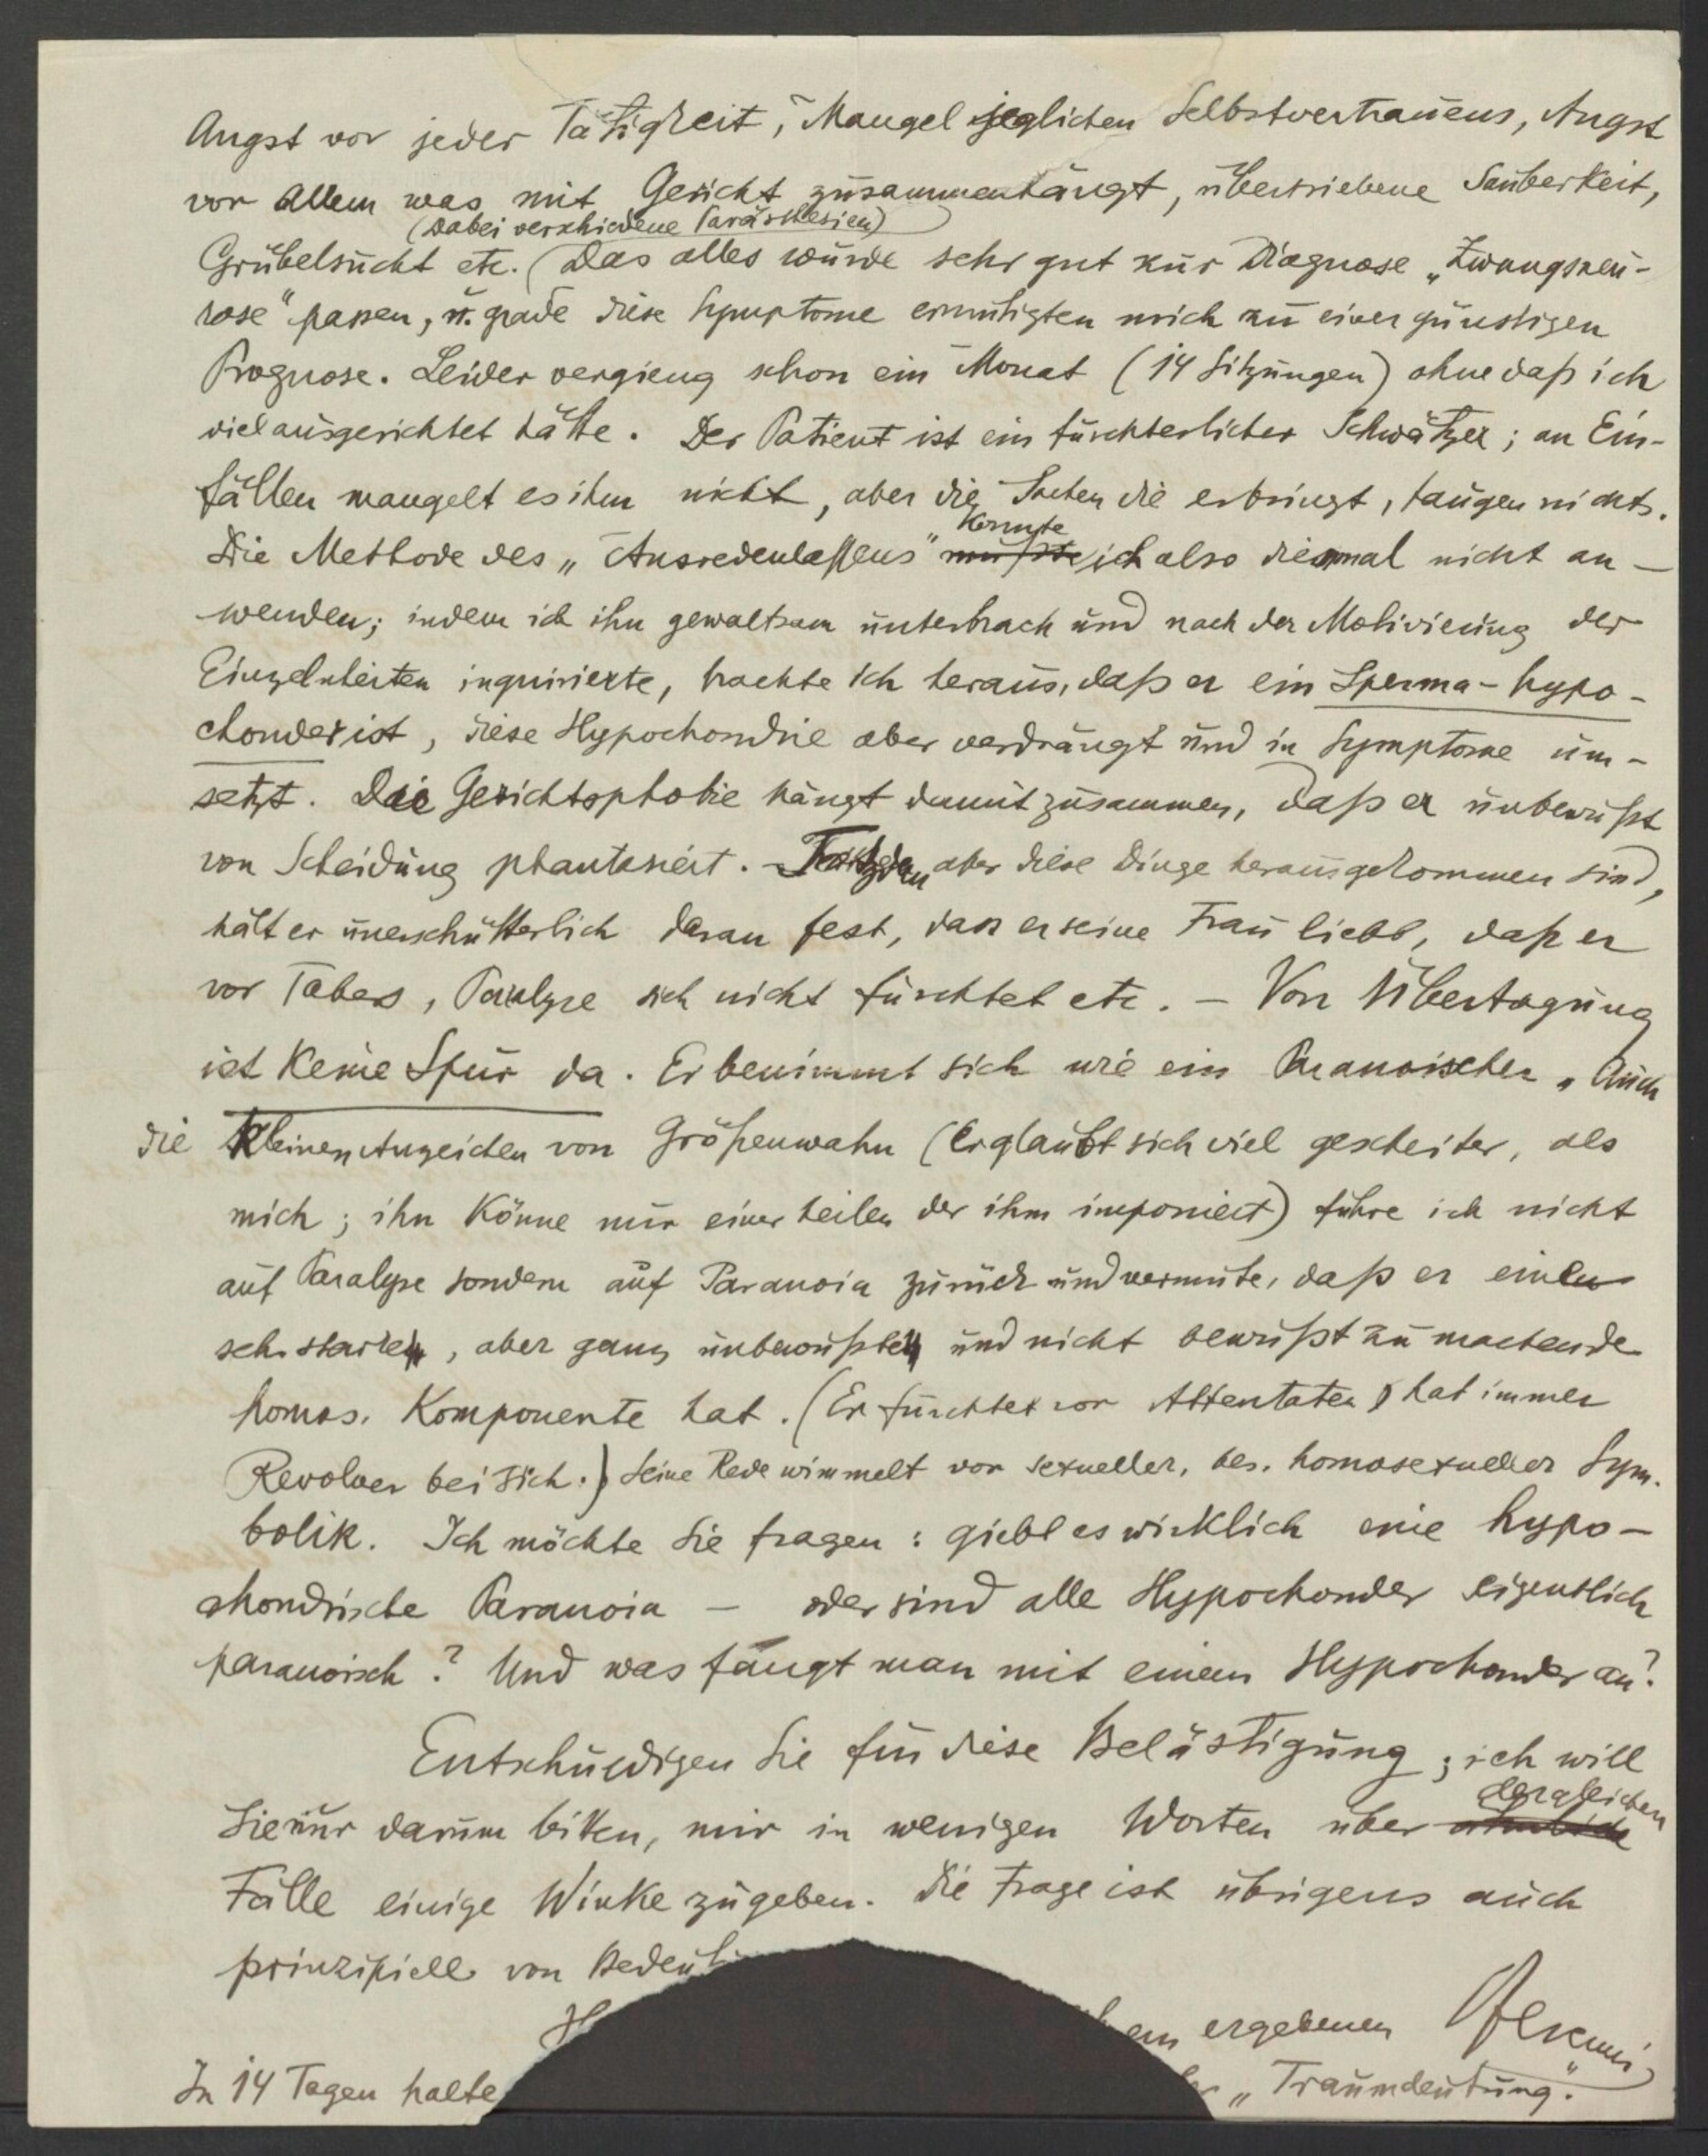 Angst vor jeder Tätigkeit, Mangel jeglichen Selbstvertrauens, Angst
vor Allem was mit Gericht zusammenhängt, übertriebene Sauberkeit,
(Dabei verschiedene Parästhesien)
Grübelsucht etc. Das alles würde sehr gut zur Diagnose „Zwangsneu-
rose" passen, u. grade diese Symptome ermutigten mich zu einer günstigen
Prognose. Leider vergieng schon ein Monat (14 Sitzungen) ohne daß ich
viel ausgerichtet hätte. Der Patient ist ein fürchterlicher Schwätzer; an Ein-
fällen mangelt es ihm nicht, aber die Sachen die er bringt, taugen nichts.
konnte
Die Methode des „Ausredenlassens" mußte ich also diesmal nicht an-
wenden; indem ich ihn gewaltsam unterbrach und nach der Motivierung der
Einzelnheiten inquirierte, brachte ich heraus, daß er ein Sperma-hypo-
chonder ist, diese Hypochondrie aber verdrängt und in Symptome um-
setzt. Die Gerichtsphobie hängt damit zusammen, daß er unbewußt
von Scheidung phantasiert. - Trotzdem aber diese Dinge herausgekommen sind,
hält er unerschütterlich daran fest, dass er seine Frau liebt, daß er
vor Tabes, Paralyse sich nicht fürchtet etc. - Von Übertagung
ist keine Spur da. Er benimmt sich wie ein Paranoischer. Auch
die kleinen Anzeichen von Größenwahn (Er glaubt sich viel gescheiter, als
mich; ihn könne nur einer heilen der ihm imponiert) führe ich nicht
auf Paralyse sondern auf Paranoia zurück und vermute, daß er eine
sehr starke, aber ganz unbewußte und nicht bewußt zu machende
homos. Komponente hat. (Er fürchtet vor Attentaten, hat immer
Revolver bei sich.) Seine Rede wimmelt von sexueller, bes. homosexueller Sym-
bolik. Ich möchte Sie fragen: giebt es wirklich eine hypo-
chondrische Paranoia - oder sind alle Hypochonder eigentlich
paranoisch? Und was fängt man mit einem Hypochonder an?
Entschuldigen Sie für diese Belästigung; ich will
dergleichen
Sie nur darum bitten, mir in wenigen Worten über ähnliche
Fälle einige Winke zu geben. Die Frage ist übrigens auch
prinzipiell von Bedeutu
H em ergebenen Ferenczi
In 14 Tagen halte er „Traumdeutung".